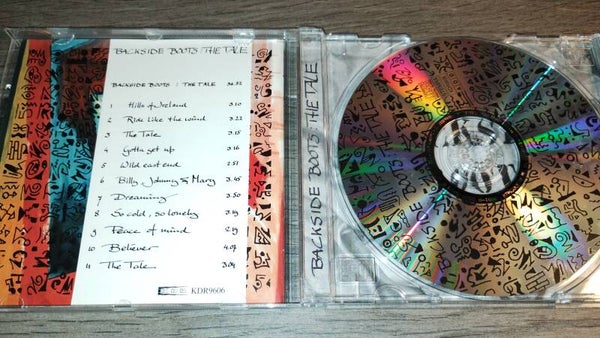 BACKSIDE BOOTS / THE TALE
BACKSIDE BOOTS : THE TALE 34:32
1 Hills of Ireland 3.10
2 Ride like the wind 3.22
3 The Tale 3.15
4 Gotta get up 3.16
5 Wild east end 2.51
6 Billy, Johnny & Mary 3.45
7 Dreaming 3.50
8 So cold, so lonely
9 Peace of mind 2.29
10 Believer 4.07
11 The Tale 3.04
KDR9606
BACKSIDE BOOTS THE TALE
BACKSIDE BOOTS THE TALE